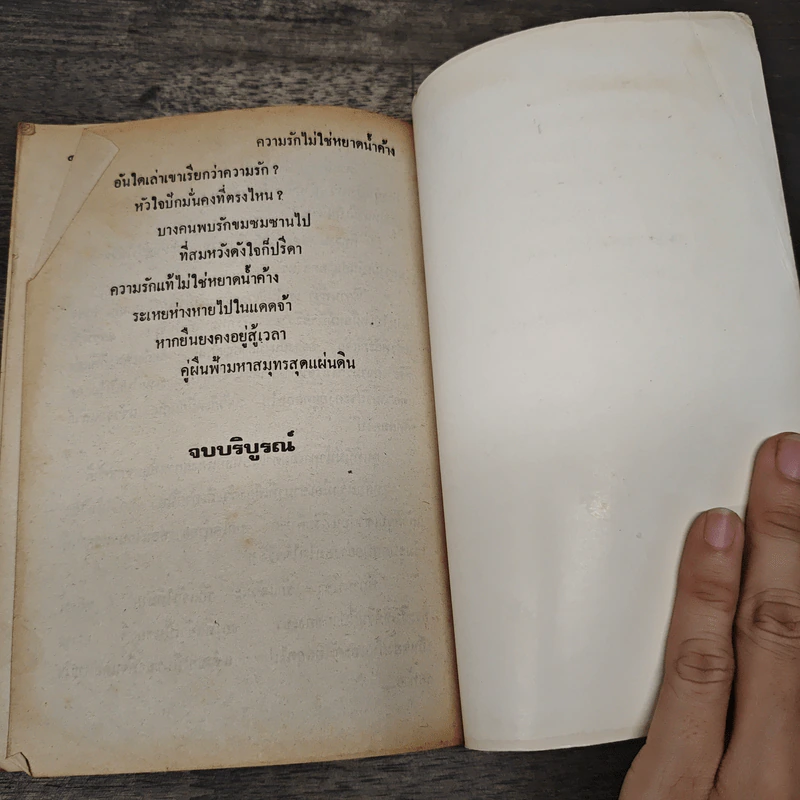 ความรักไม่ใช่หยาดน้ำค้าง
อันใดเล่าเขาเรียกว่าความรัก ?
หัวใจปักมั่นคงที่ตรงไหน ?
บางคนพบรักขมซมซานไป
ที่สมหวังดังใจก็ปรีดา
ความรักแท้ไม่ใช่หยาดน้ำค้าง
ระเหยห่างหายไปในแดดจ้า
หากยืนยงคงอยู่สู้เวลา
คู่ผืนฟ้ามหาสมุทรสุดแผ่นดิน
จบบริบูรณ์